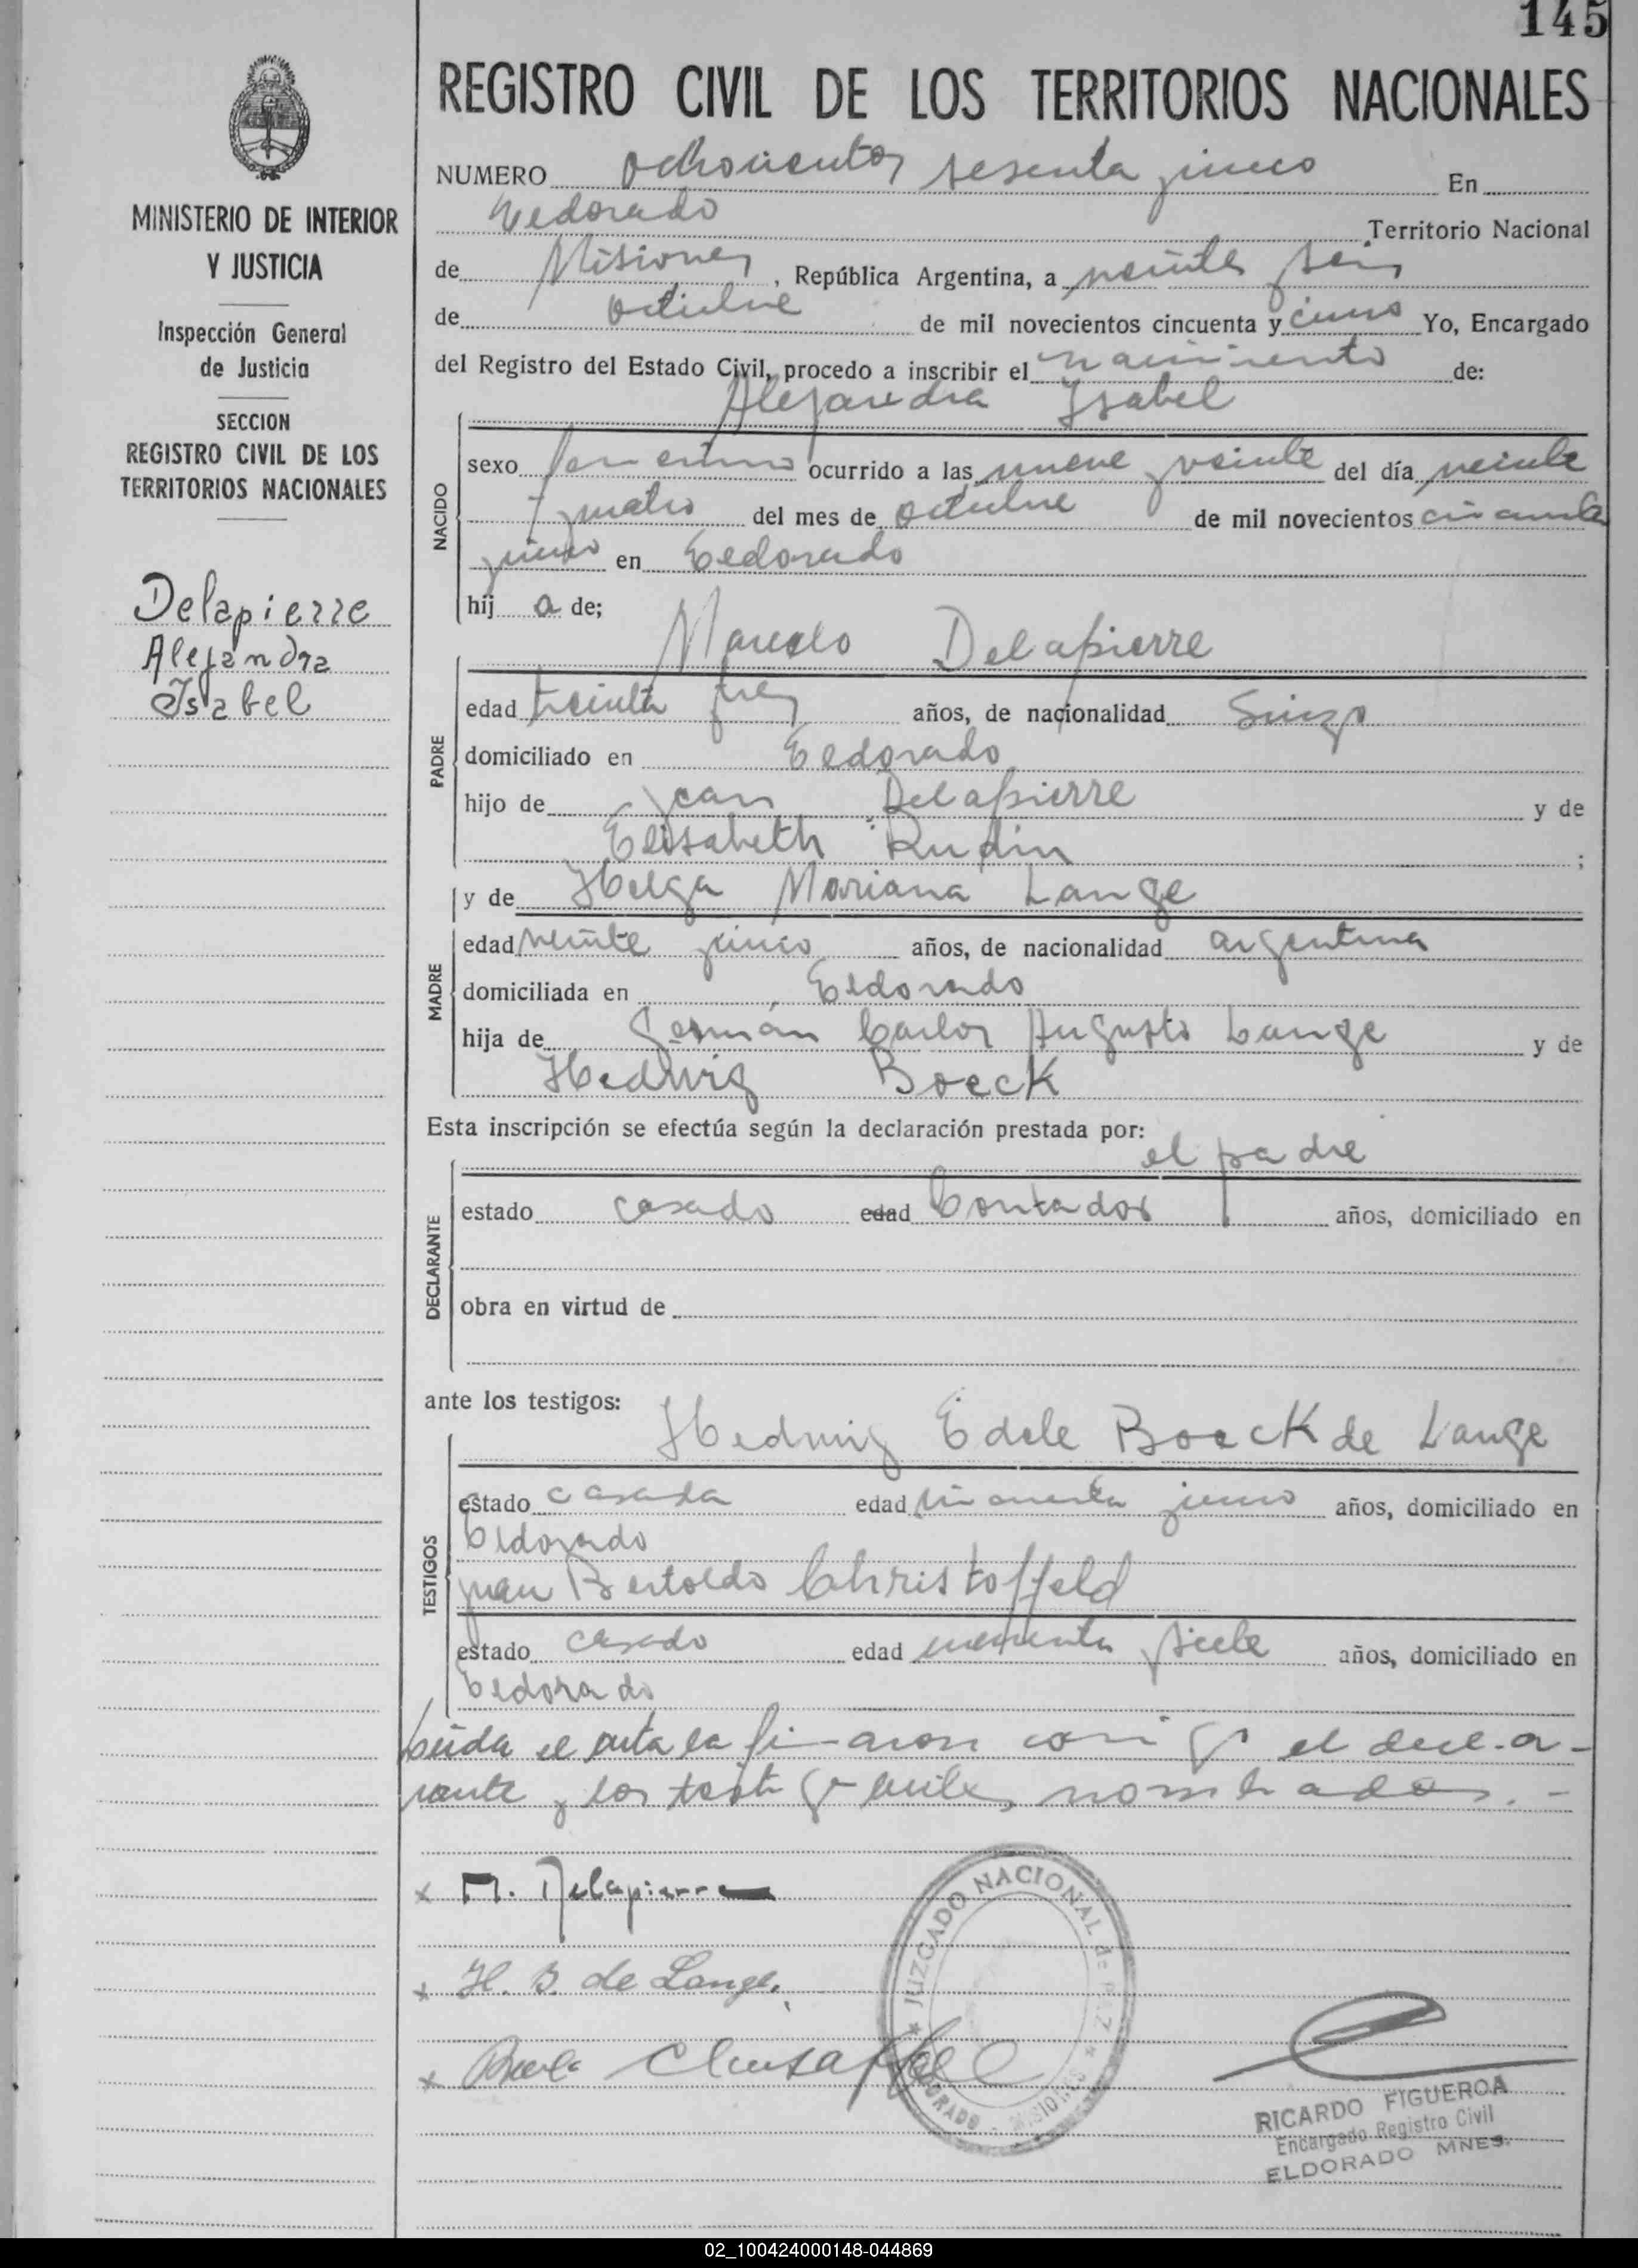 145
REGISTRO CIVIL DE LOS TERRITORIOS NACIONALES
MINISTERIO DE INTERIOR
Y JUSTICIA
Inspección General
de Justicia
SECCION
REGISTRO CIVIL DE LOS
TERRITORIOS NACIONALES
Delapierre
Alejandra
Isabel
NUMERO ochocientos sesenta y cinco En
Eldorado Territorio Nacional
de Misiones, República Argentina, a veinte y seis
de octubre de mil novecientos cincuenta y cinco Yo, Encargado
del Registro del Estado Civil, procedo a inscribir el nacimiento de:
Alejandra Isabel
NACIDO
sexo femenino ocurrido a las nueve y veinte del día veinte
y cuatro del mes de octubre de mil novecientos cincuenta
y cinco en Eldorado
hij a de;
Marcelo Delapierre
PADRE
edad treinta y tres años, de nacionalidad Suizo
domiciliado en Eldorado
hijo de Jean Delapierre y de
Elisabeth Rudin ;
y de Helga Mariana Lange
MADRE
edad veinte y cinco años, de nacionalidad argentina
domiciliada en Eldorado
hija de Germán Carlos Augusto Lange y de
Hedwig Boeck
Esta inscripción se efectúa según la declaración prestada por:
el padre
DECLARANTE
estado casado edad Contador años, domiciliado en
obra en virtud de
ante los testigos:
Hedwig Edele Boeck de Lange
TESTIGOS
estado casada edad cincuenta y cinco años, domiciliado en
Eldorado
Juan Bertoldo Christoffeld
estado casado edad cuarenta y siete años, domiciliado en
Eldorado
Leída el acta la firmaron conmigo el decla-
rante y los testigos nombrados.-
x M. Delapierre
x H. B. de Lange.
x
JUZGADO NACIONAL de PAZ
ELDORADO - MISIONES
RICARDO FIGUEROA
Encargado Registro Civil
ELDORADO MNES.
02_100424000148-044869